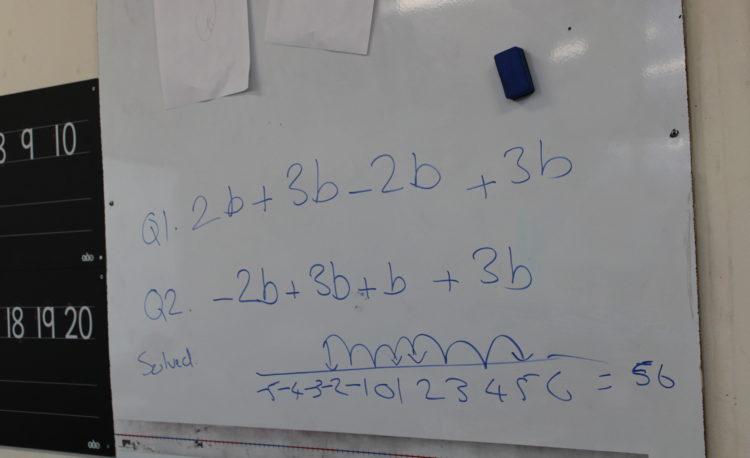 8 9 10
Q1. 2b+3b-2b +3b
Q2. -2b+3b+b +3b
18 19 20
Solved
-5-4-3-2-1 0 1 2 3 4 5 6 = 5b
abc
abc